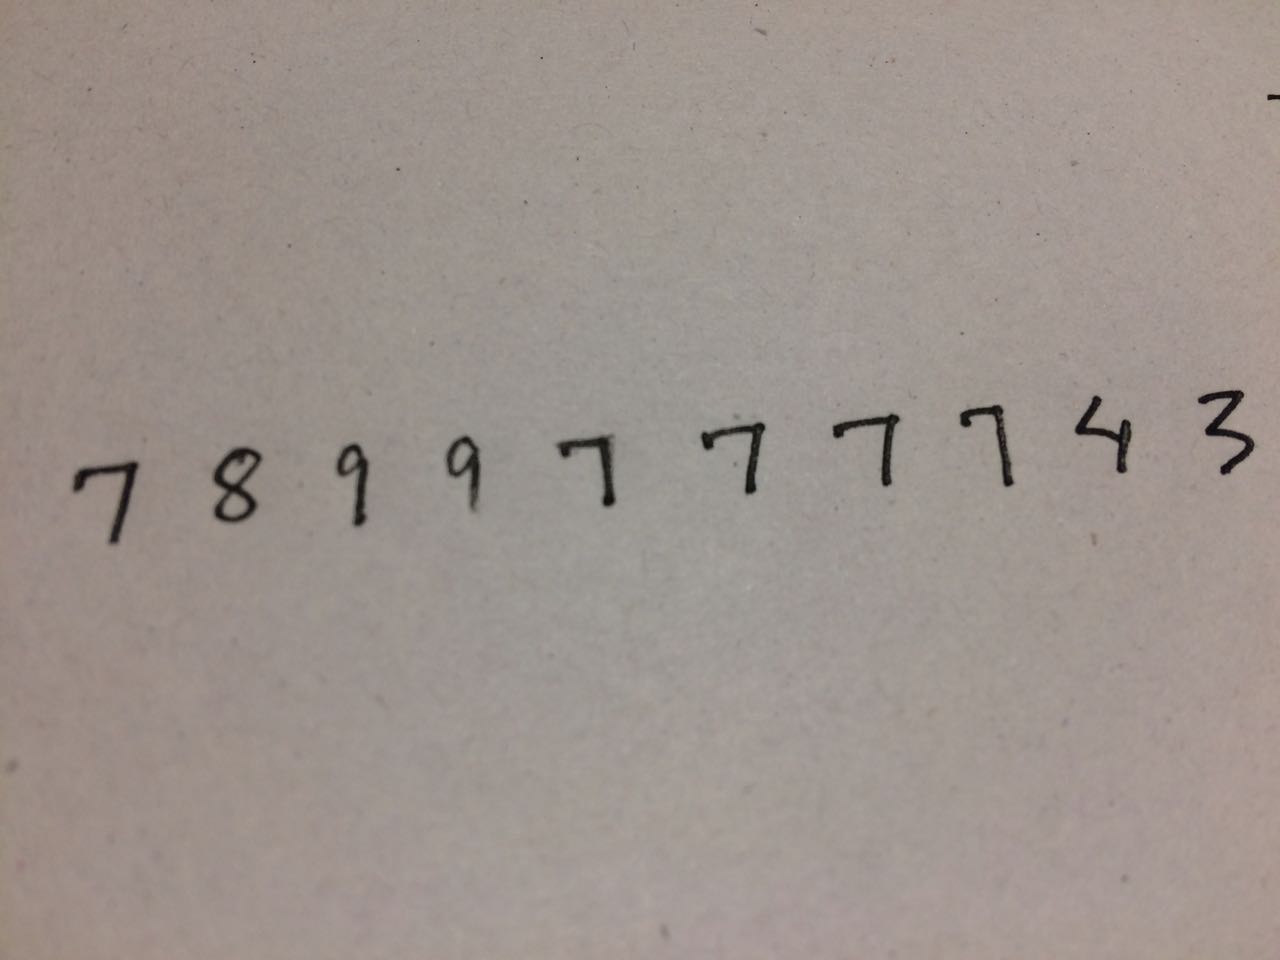 7 8 9 9 7 7 7 7 4 3